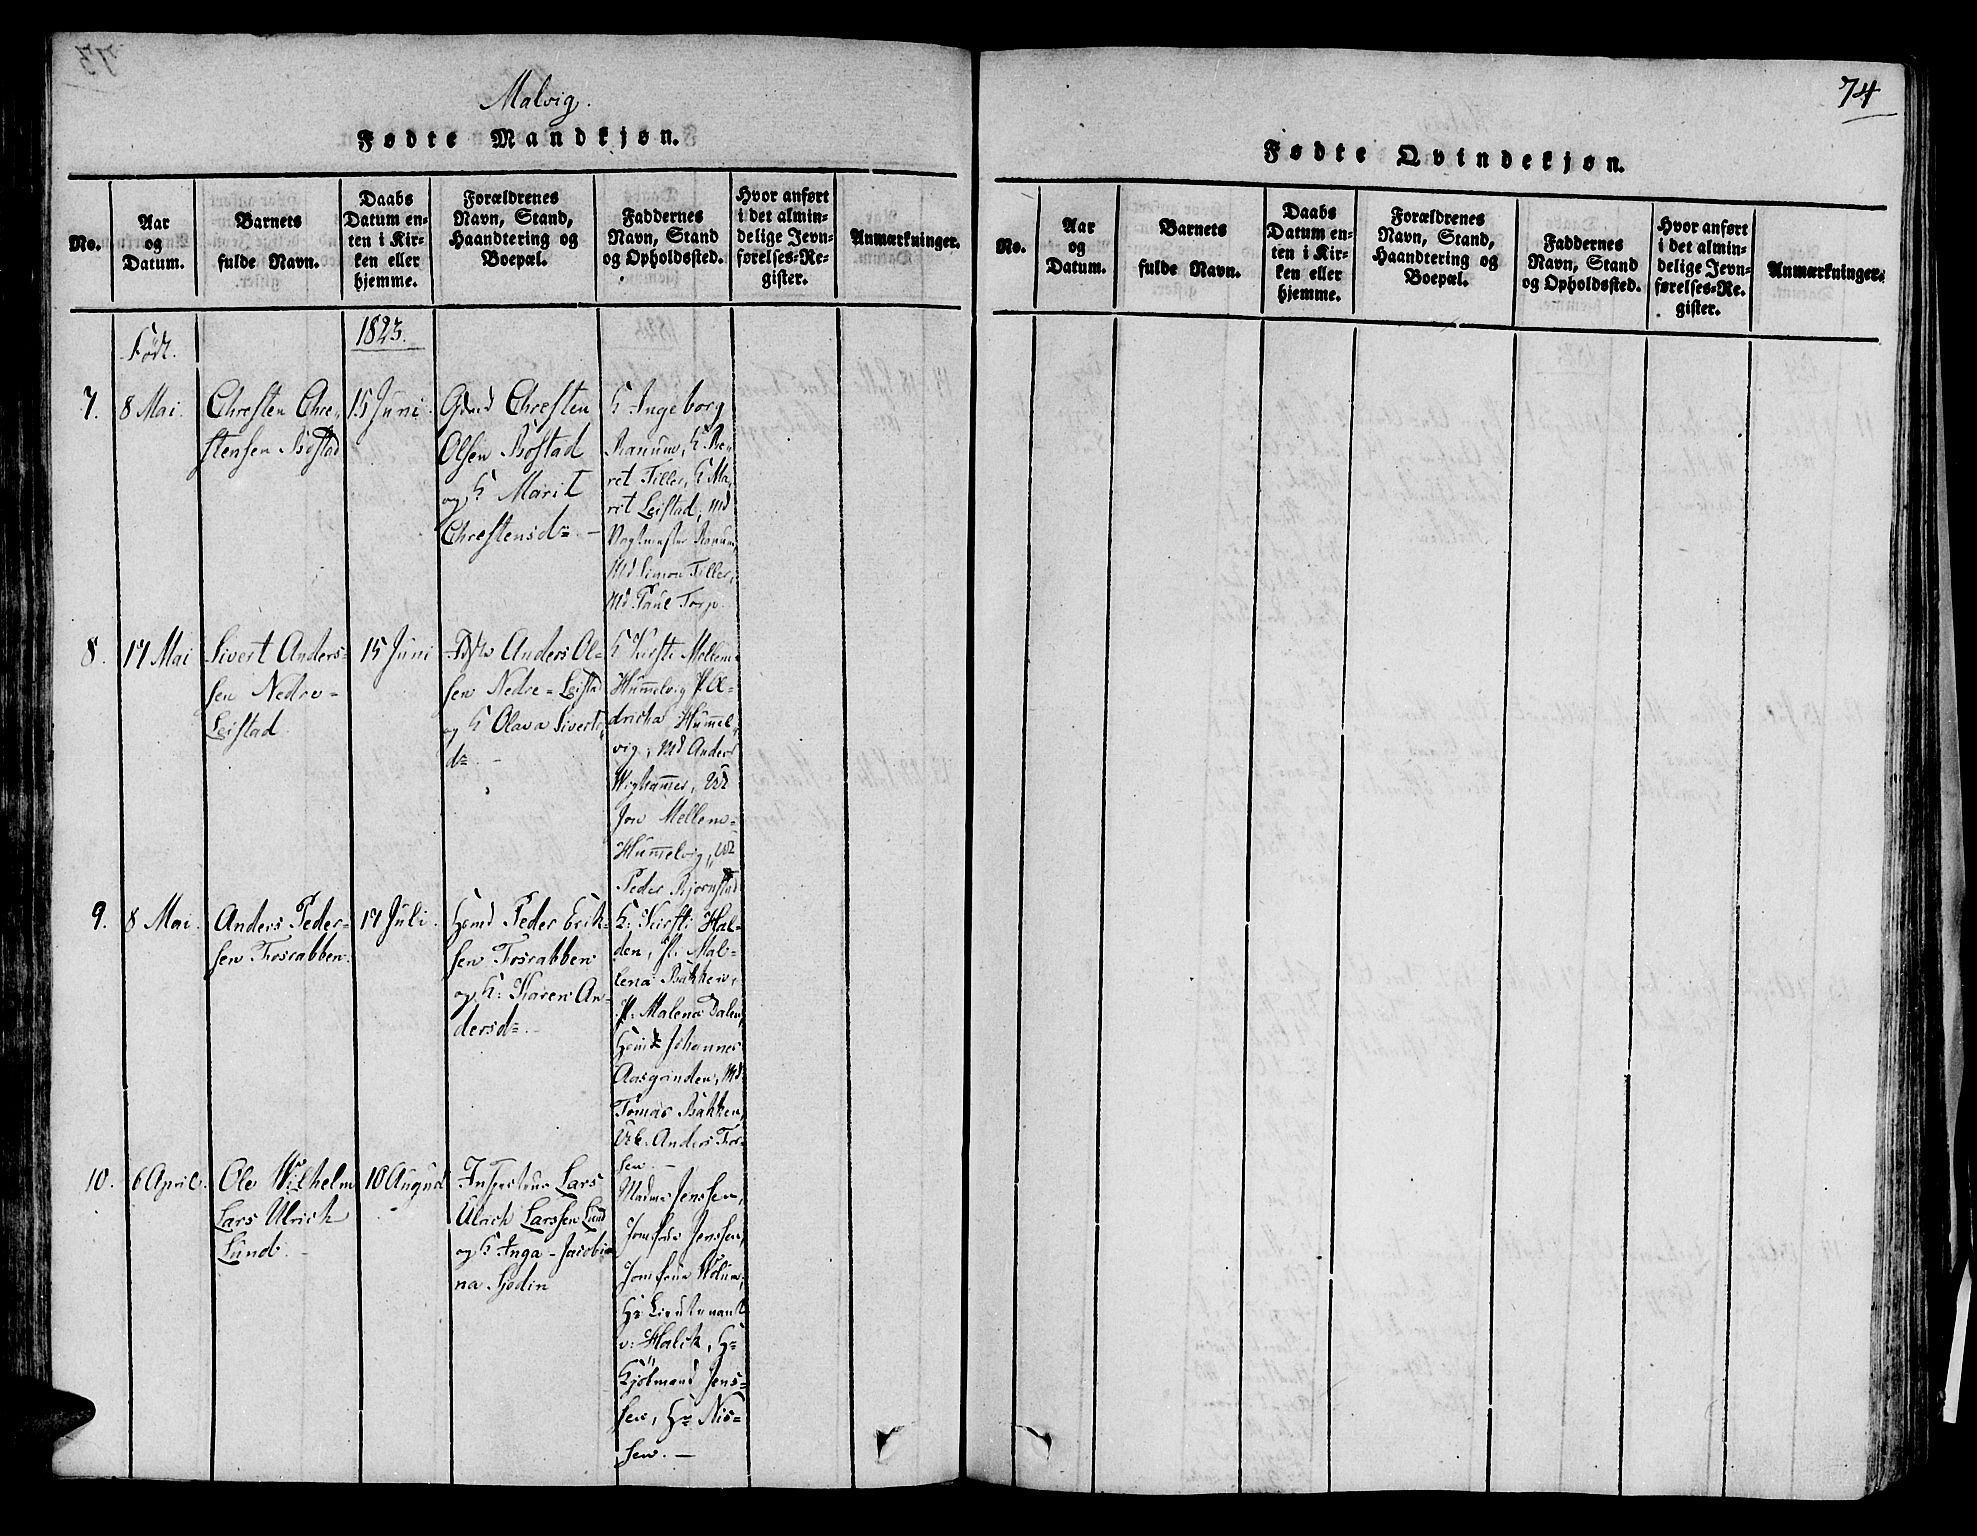 Malvig.
Fødte Mandkjøn.
No.
Aar
og
Datum.
Barnets
fulde Navn.
Daabs
Datum en-
ten i Kir-
ken eller
hjemme.
Forældrenes
Navn, Stand,
Haandtering og
Boepæl.
Faddernes
Navn, Stand
og Opholdssted.
Hvor anført
i det almin-
delige Jevn-
førelses-Re-
gister.
Anmærkninger.
Født.
1823.
7.
8 Mai
Chresten Chre-
stensen Bostad
15 Juni
Gmd Chresten
Olsen Bostad
og K Marit
Chrestensd= —
K Ingeborg
Ranum, K Be-
ret Tiller, K Ma-
rit Leistad, Md
Ranum
Md Simon Tiller,
Md Paul Torp.
8.
17 Mai
Sivert Anders-
sen Nedre-
Leistad
15 Juni
Anders Ol-
sen Nedre-Leistad
og K Olava Siverts-
d= —
K Kirsti Mellem-
Hummelvig, P.
Hummel-
vig, Md Anders
Vighammer,
Jon Mellem-
Hummelvig,
Peder Bjørnstad
9.
8 Mai.
Anders Peder-
sen Fosrabben.
17 Juli.
Hmd Peder Erik-
sen Fosrabben
og K: Karen An-
dersd= —
K: Kirsti Hal-
den, P. Mal-
lena Bakken,
P. Malena Dalen,
Johannes
Aasgrinden, Md
Tomas Bakken,
Anders For-
sen. —
10.
6 April.
Ole Wilhelm
Lars Ulrich
Lund. —
10 August
Inspecteur Lars
Ulrich Larssen Lund
og K Inga-Jacobi-
na Hjodin
Madme Jenssen,
Jomfrue Jenssen,
Jomfrue
Hr Lieutenant
v: Halck, Hr
Kjøbmand Jens-
sen, Hr Nis-
sen. —
74
Fødte Qvindekjøn.
No.
Aar
og
Datum.
Barnets
fulde Navn.
Daabs
Datum en-
ten i Kir-
ken eller
hjemme.
Forældrenes
Navn, Stand,
Haandtering og
Boepæl.
Faddernes
Navn, Stand
og Opholdssted.
Hvor anført
i det almin-
delige Jevn-
førelses-Re-
gister.
Anmærkninger.